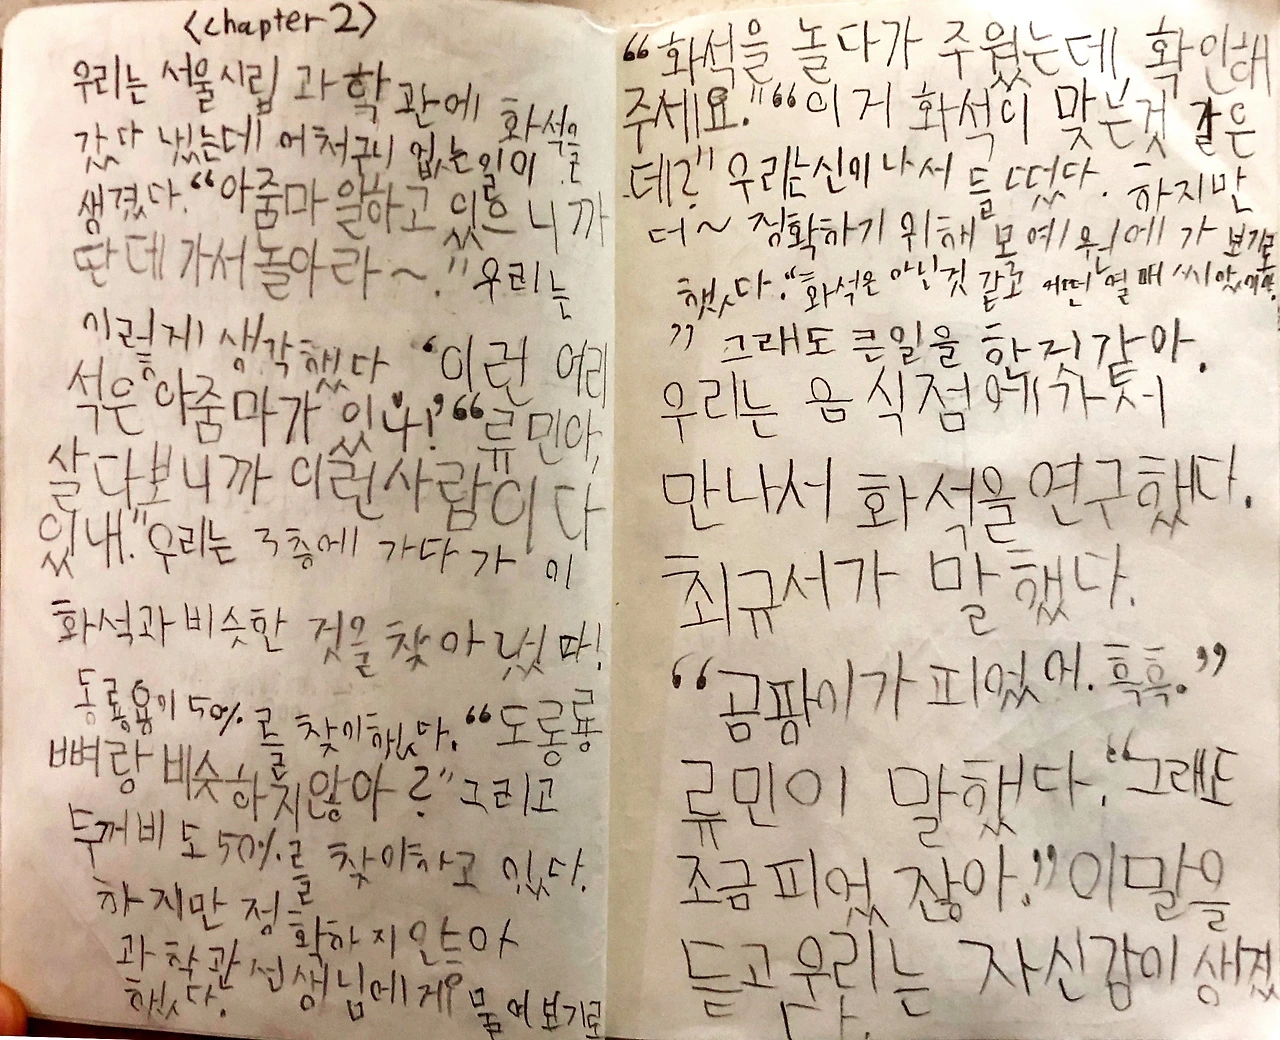 <chapter 2>
우리는 서울시립 과학관에 화석을
갔다 냈는데 어처구니 없는 일이
생겼다. “아줌마 일하고 있으니까
딴데 가서 놀아라~.” 우리는
이렇게 생각했다 “이런 어리
석은 아줌마가 있나!” “류민아,
살다보니까 이런사람이 다
있내.” 우리는 3층에 가다가 이
화석과 비슷한 것을 찾아 냈따!
동룡용이 50%를 찾이했다. “도롱룡
뼈랑 비슷하지않아?” 그리고
두꺼비도 50%를 찾이하고 있다.
하지만 정확하지안으아
과학관 선생님에게 물어보기로
했다.
“화석을 놀다가 주웠는데 확인해
주세요.” “이거 화석이 맞는것 같은
데?” 우리는신이나서 들떴다. 하지만
더~ 정확하기 위해 모예원에 가 보기로
했다. “화석은 아닌것 같고 어떤 열매 씨앗이야.
” 그래도 큰일을 한것같아.
우리는 음식점에가서
만나서 화석을 연구했다.
최규서가 말했다.
“곰팡이가 피었어. 흑흑.”
류민이 말했다. “그래도
조금피었잖아.” 이말을
듣고 우리는 자신감이 생겼
다.